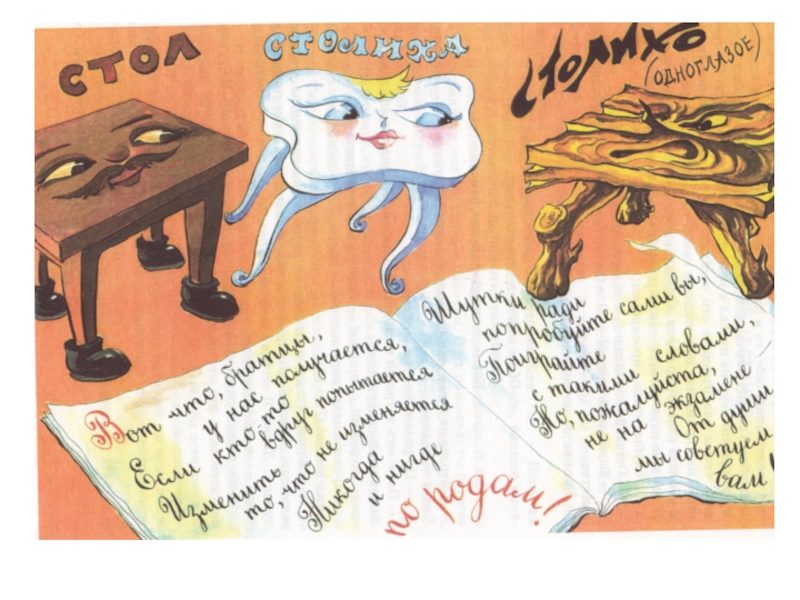 СТОЛ
СТОЛИХА
СТОЛИХО
(ОДНОГЛАЗОЕ)
Вот что, братцы,
у нас получается,
Если кто-то
вдруг попытается
Изменить
то, что не изменяется
Никогда
и нигде
по родам!
Шутки ради
попробуйте сами вы,
Поиграйте
с такими словами,
Но, пожалуйста,
не на экзамене
От души
мы советуем
вам!